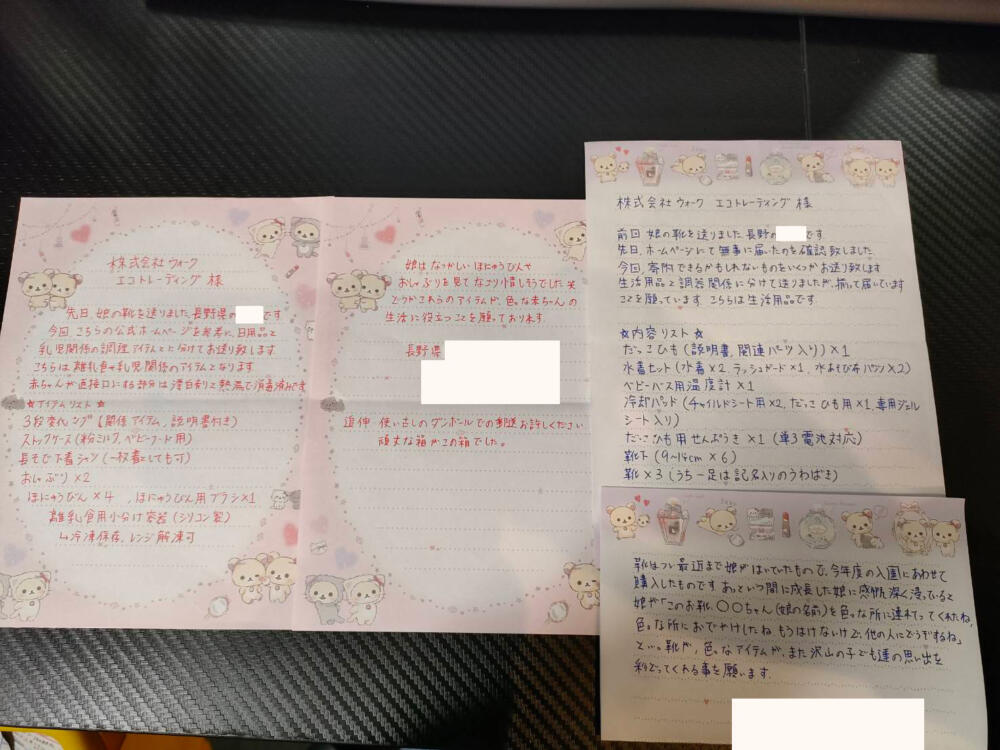 株式会社ウォーク
エコトレーディング 様
先日、娘の靴を送りました、長野県の です
今回、こちらの公式ホームページを参考に、日用品と
乳児関係の調理アイテムとに分けてお送り致します
こちらは離乳食や乳児関係のアイテムとなります
赤ちゃんが直接口にする部分は漂白剤と熱湯で消毒済です
☆アイテムリスト☆
3段変化 【関係アイテム、説明書付き】
ストックケース(粉ミルク、ベビーフード用)
長そで下着シャツ(一枚着としても可)
おしゃぶり×2
ほにゅうびん×4 、ほにゅうびん用ブラシ×1
離乳食用小分け容器(シリコン製)
↳冷凍保存、レンジ解凍可
娘はなつかしいほにゅうびんや
おしゃぶりを見てなごり惜しそうでした笑
どうかこれらのアイテムが、色々な赤ちゃんの
生活に役立つことを願っております。
長野県
追伸 使い古しのダンボールでの郵送お許しください
頑丈な箱がこの箱でした。
株式会社ウォーク エコトレーディング 様
前回 娘の靴を送りました 長野の です
先日、ホームページにて無事に届いたのを確認致しました
今回、寄付できるかもしれないものをいくつかお送り致します
生活用品と調理関係に分けて送りましたが、揃って届いています
ことを願っています。こちらは生活用品です。
☆内容リスト☆
だっこひも(説明書、関連パーツ入り)×1
水着セット(水着×2、ラッシュガード×1、水あそび布パンツ×2)
ベビーバス用温度計×1
冷却パッド(チャイルドシート用×2、だっこひも用×1、専用ジェル
シート入り)
だっこひも用せんぷうき×1(単3電池対応)
靴下(9~14cm×6)
靴×3(うち一足は記名入りのうわばき)
靴はつい最近まで娘がはいていたもので、今年度の入園にあわせて
購入したものです。あっという間に成長した娘に感慨深く浸っていると
娘が「このお靴、〇〇ちゃん(娘の名前)を色々な所に連れてってくれたね、
色々な所におでかけしたね もうはけないけど、他の人にどうぞするね」
と…。靴が、色々なアイテムが、また沢山の子ども達の思い出を
彩どってくれる事を願います。